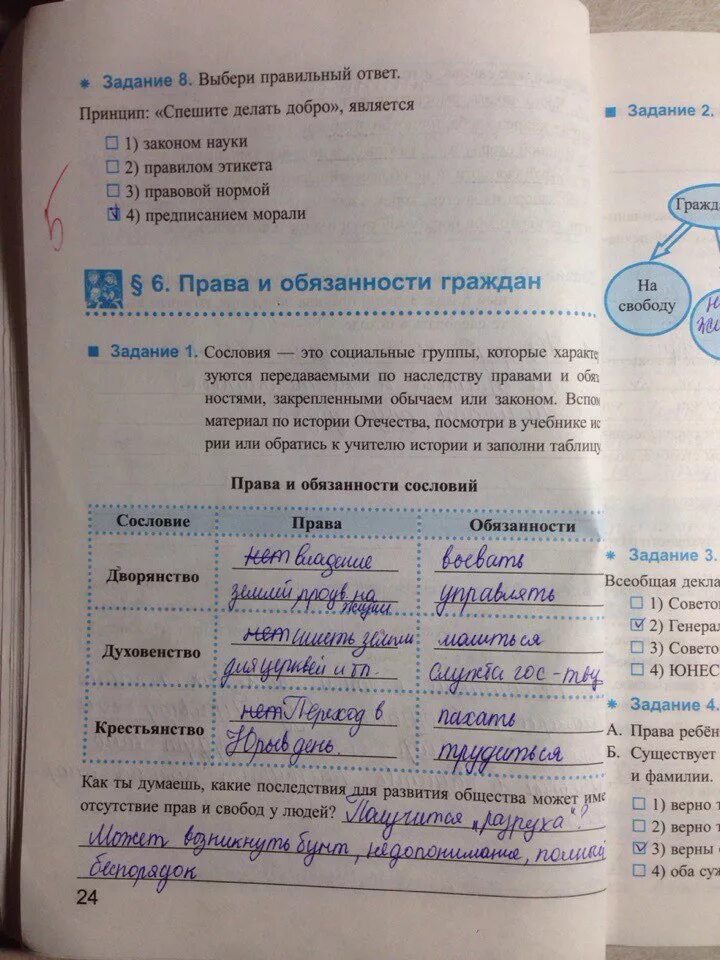 * Задание 8. Выбери правильный ответ.
Принцип: «Спешите делать добро», является
1) законом науки
2) правилом этикета
3) правовой нормой
4) предписанием морали
§ 6. Права и обязанности граждан
Задание 1. Сословия — это социальные группы, которые характе
зуются передаваемыми по наследству правами и обяз
ностями, закрепленными обычаем или законом. Вспом
материал по истории Отечества, посмотри в учебнике ис
рии или обратись к учителю истории и заполни таблицу
Права и обязанности сословий
Сословие Права Обязанности
Дворянство
нет владение
землёй
на
жизни
воевать
управлять
Духовенство
нет
для церквей и тп.
молиться
служба гос-тву
Крестьянство
нет Переход в
Юрьев день.
пахать
трудиться
Как ты думаешь, какие последствия для развития общества может име
отсутствие прав и свобод у людей? Получится „разруха"?
Может возникнуть бунт, недопонимание, полный
беспорядок
24
5
Задание 2.
Гражд
На
свободу
* Задание 3.
Всеобщая декла
1) Советом
2) Генерал
3) Советом
4) ЮНЕС
* Задание 4.
А. Права ребён
Б. Существует
и фамилии.
1) верно т
2) верно т
3) верны
4) оба суж